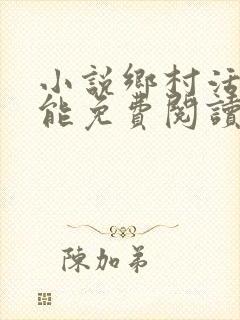 小說鄉村活
能免費閱讀
陳加弟